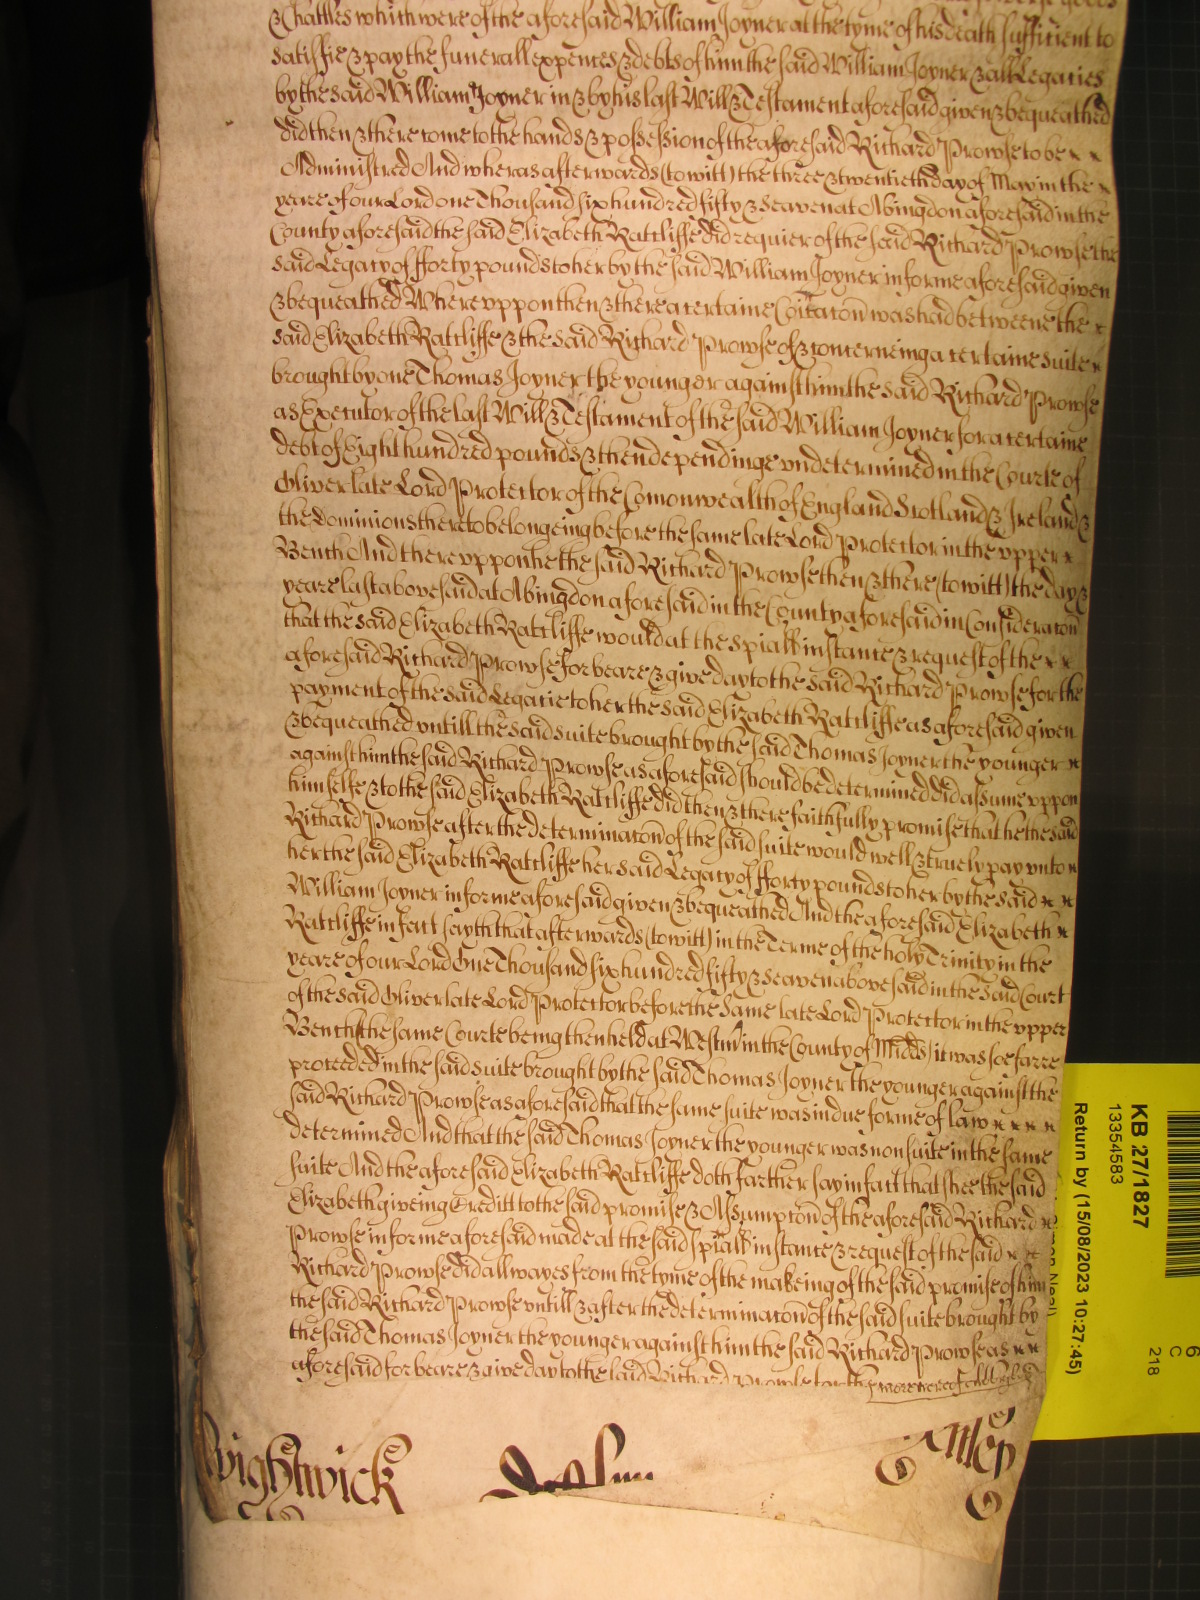 & Chattles which were of the aforesaid William Joyner at the tyme of his death sufficient to
satisfie & pay the funerall expences & debts of him the said William Joyner & all Legacies
by the said William Joyner in & by his last Will & Testament aforesaid given & bequeathed
did then & there come to the hands & possession of the aforesaid Richard Prowse to be
Administred And wheras afterwards (to witt) the three & twentieth day of May in the
yeare of our Lord one Thousand six hundred fifty & seaven at Abingdon aforesaid in the
County aforesaid the said Elizabeth Rattcliffe did requier of the said Richard Prowse the
said Legacy of fforty pounds to her by the said William Joyner in forme aforesaid given
& bequeathed Wherevppon then & there a certaine Coicacon was had betweene the
said Elizabeth Rattcliffe & the said Richard Prowse of & concerneing a certaine suite
brought by one Thomas Joyner the younger against him the said Richard Prowse
as Executor of the last Will & Testament of the said William Joyner for a certaine
debt of Eight hundred pounds & then dependinge vndetermined in the Courte of
Oliver late Lord Protector of the Comonwealth of England Scotland & Ireland &
the dominions thereto belongeing before the same late Lord Protector in the vpper
Bench And therevppon he the said Richard Prowse then & there (to witt) the day &
yeare last abovesaid at Abingdon aforesaid in the County aforesaid in Consideracon
that the said Elizabeth Rattcliffe would at the spiall instance & request of the
aforesaid Richard Prowse forbeare & give day to the said Richard Prowse for the
payment of the said Legacie to her the said Elizabeth Rattcliffe as aforesaid given
& bequeathed vntill the said suite brought by the said Thomas Joyner the younger
against him the said Richard Prowse as aforesaid should be determined did assume vppon
himselfe & to the said Elizabeth Rattcliffe did then & there faithfully promise that he the said
Richard Prowse after the determinacon of the said suite would well & truely pay vnto
her the said Elizabeth Rattcliffe her said Legacy of fforty pounds to her by the said
William Joyner in forme aforesaid given & bequeathed And the aforesaid Elizabeth
Rattcliffe in fact sayth that afterwards (to witt) in the Terme of the holy Trinity in the
yeare of our Lord One Thousand six hundred fifty & seaven abovesaid in the said Court
of the said Oliver late Lord Protector before the same late Lord Protector in the vpper
Bench (the same Courte being then held at Westmr in the County of Midds) it was soe farre
proceded in the said suite brought by the said Thomas Joyner the younger against the
said Richard Prowse as aforesaid that the same suite was in due forme of law
determined And that the said Thomas Joyner the younger was nonsuite in the same
suite And the aforesaid Elizabeth Rattcliffe doth farther say in fact that shee the said
Elizabeth giveing Creditt to the said promise & Assumpcon of the aforesaid Richard
Prowse in forme aforesaid made at the said spiall instance & request of the said
Richard Prowse did allwayes from the tyme of the makeing of the said promise of him
the said Richard Prowse vntill & after the determinacon of the said suite brought by
the said Thomas Joyner the younger against him the said Richard Prowse as
aforesaid forbeare & give day to the said Richard Prowse for the
Wightwick
KB 27/1827
13354583
Return by (15/08/2023 10:27:45)
6
C
218